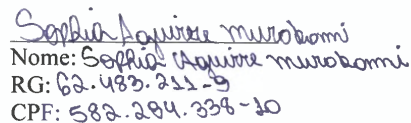 Sophia Aguirre Murakami
Nome: Sophia Aguirre Murakami
RG: 62.483.211-9
CPF: 582.284.338-10